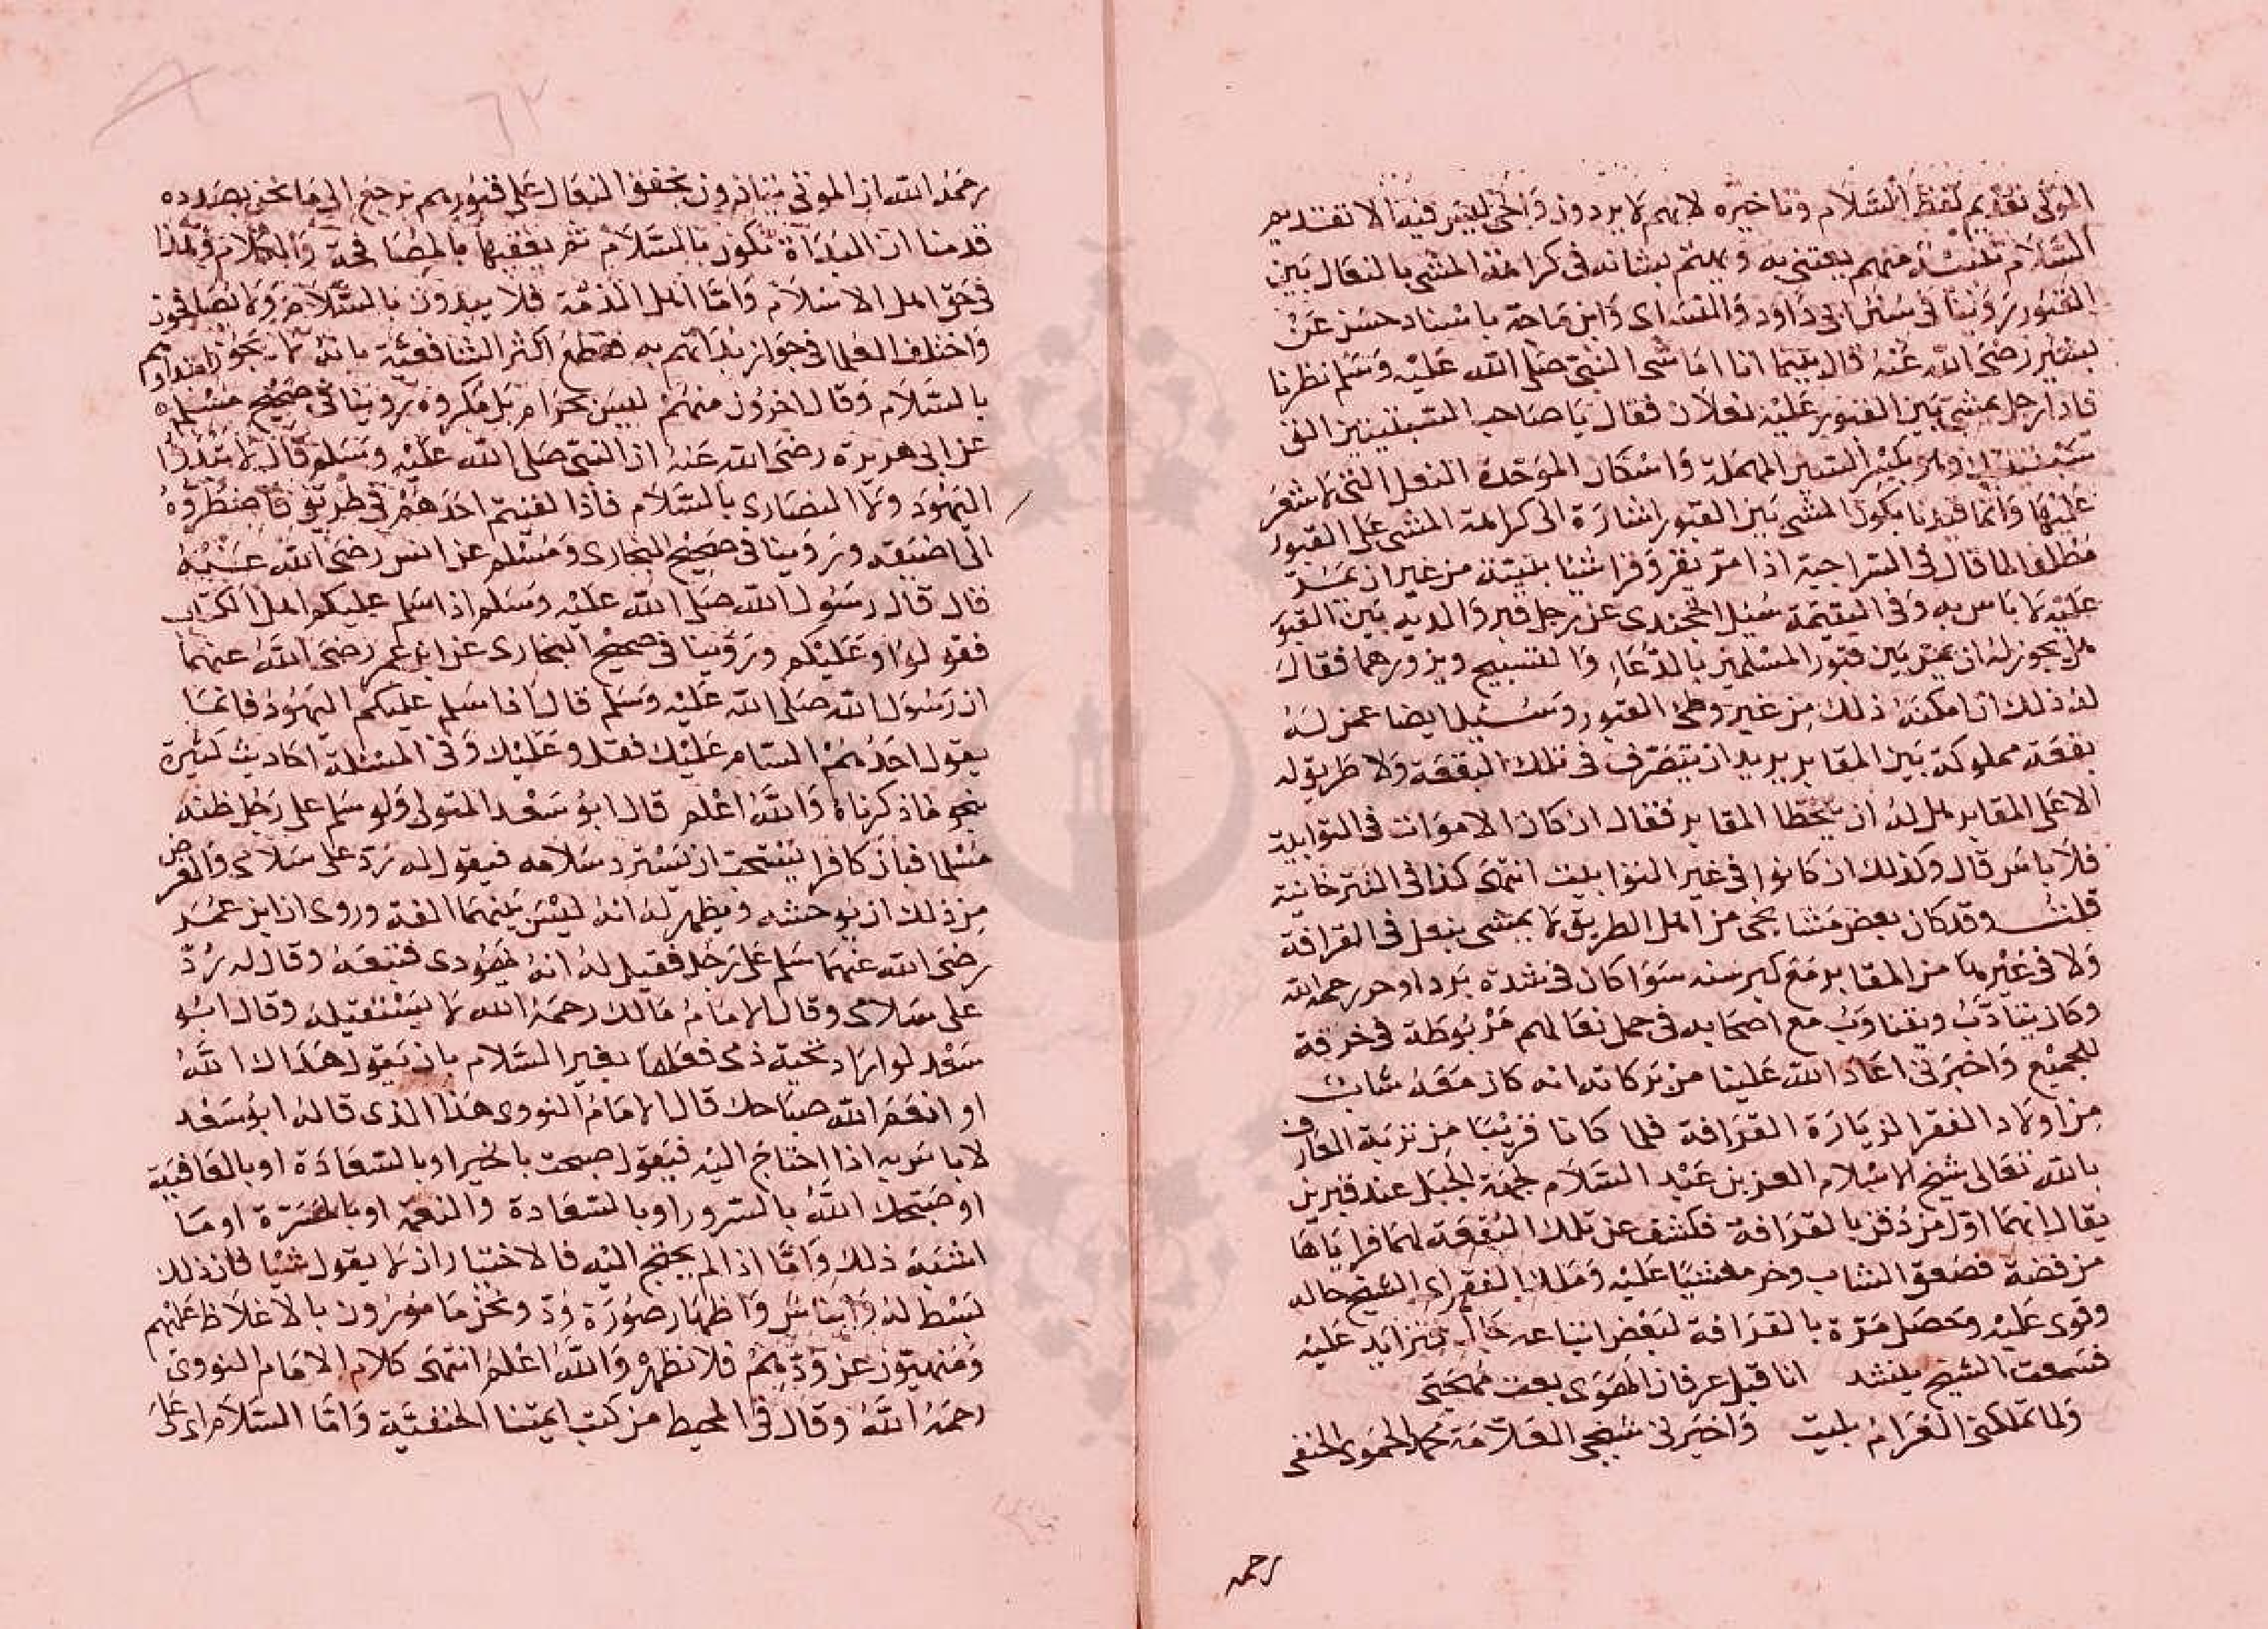 الموتى تقديم لفظ السلام وتاخيره لانهم لا يردون والحي ليس فيه الا تقديم
السلام تنبيه مهم يعتنى به ويهتم بشانه في كراهة المشي بالنعال بين
القبور روينا في سنن ابي داود والنساى وابن ماجة باسناد حسن عن
بشير رضى الله عنه قال بينما انا اماشى النبي صلى الله عليه وسلم نظرنا
فاذا رجل يمشي بين القبور عليه نعلان فقال يا صاحب السبتيتين الق
سبتيتيك وهو بكسر السين المهملة واسكان الموحدة النعل التي لا شعر
عليها وانما قيدنا بكون المشي بين القبور اشارة الى كراهة المشي على القبور
مطلقا لما قال في السراجية اذا مر بقبر وقرا شيئا بنيته من غير ان يمر
عليه لا باس به وفي اليتيمة سئل الخجندى عن رجل قبر والديه بين القبور
هل يجوز له ان يمر بين قبور المسلمين بالدعاء والتسبيح ويزورهما فقال
له ذلك ان امكنه ذلك من غير وطئ القبور وسئل ايضا عمن له
بقعة مملوكة بين المقابر يريد ان يتصرف في تلك البقعة ولا طريق له
الا على المقابر هل له ان يتخطا المقابر فقال ان كان الاموات في التوابيت
فلا باس قال وكذلك ان كانوا في غير التوابيت انتهى كذا في التترخانية
قلت وقد كان بعض مشايخي من اهل الطريق لا يمشى بنعل في القرافة
ولا في غيرها من المقابر مع كبر سنه سوا كان في شدة برد او حر رحمه الله
وكان يتادب ويتناوب مع اصحابه في حمل نعالهم مربوطة في خرقة
للجميع واخبرني اعاد الله علينا من بركاته انه كان معه شاب
من اولاد الفقرا لزيارة القرافة فلما كانا قريبا من تربة العارف
بالله تعالى شيخ الاسلام العز بن عبد السلام لجهة الجبل عند قبرين
يقال انهما اول من دفن بالقرافة فكشف عن تلك البقعة لهما فراياها
من فضة فصعق الشاب وخر مغشيا عليه وملك الفقر اى الشيخ حاله
وقوى عليه وحصل مرة بالقرافة لبعض اتباعه حال تزايد عليه
فسمعت الشيخ ينشد انا قبل عرفان الهوى بعت مهجتي
ولما تملكني الغرام بليت واخبرني شيخي العلامة محمد الحموى الحنفى
رحمه
رحمه الله ان الموتى يتاذون بخفق النعال على قبورهم نرجع الى ما نحن بصدده
قدمنا ان البداة تكون بالسلام ثم يعقبها بالمصافحة والكلام وهذا
في حق اهل الاسلام واما اهل الذمة فلا يبدون بالسلام ولا يصافحون
واختلف العلما في جواز بداتهم به فقطع اكثر الشافعية بانه لا يجوز ابتداوهم
بالسلام وقال اخرون منهم ليس بحرام بل مكروه روينا في صحيح مسلم
عن ابى هريرة رضى الله عنه ان النبي صلى الله عليه وسلم قال لا تبدؤا
اليهود ولا النصارى بالسلام فاذا لقيتم احدهم في طريق فاضطروه
الى اضيقه وروينا في صحيح البخارى ومسلم عن انس رضى الله عنه
قال قال رسول الله صلى الله عليه وسلم اذا سلم عليكم اهل الكتاب
فقولوا وعليكم وروينا في صحيح البخارى عن ابن عمر رضى الله عنهما
ان رسول الله صلى الله عليه وسلم قال اذا سلم عليكم اليهود فانما
يقول احدهم السام عليك فقل وعليك وفي المسئلة احاديث كثيرة
نحو ما ذكرناه والله اعلم قال ابو سعد المتولى ولو سلم على رجل ظنه
مسلما فبان كافرا يستحب ان يسترد سلامه فيقول له رد على سلامى والغرض
من ذلك ان يوحشه ويظهر له انه ليس بينهما الفة وروى ان ابن عمر
رضى الله عنهما سلم على رجل فقيل له انه يهودى فتبعه وقال له رد
على سلامى وقال الامام مالك رحمه الله لا يستقيله وقال ابو
سعد لو اراد تحية ذمى فعلها بغير السلام بان يقول هداك الله
او انعم الله صباحك قال الامام النووى هذا الذى قاله ابو سعد
لا باس به اذا احتاج اليه فيقول صبحت بالخير او بالسعادة او بالعافية
او صبحك الله بالسرور او بالسعادة والنعمة او بالمسرة او ما
اشبه ذلك واما اذا لم يحتج اليه فالاختيار ان لا يقول شيئا فان ذلك
بسط له وايناس واظهار صورة ود ونحن مامورون بالاغلاظ عليهم
ومنهيون عن ودهم فلا نظهره والله اعلم انتهى كلام الامام النووى
رحمه الله وقال في المحيط من كتب ايمتنا الحنفية واما السلام اى على